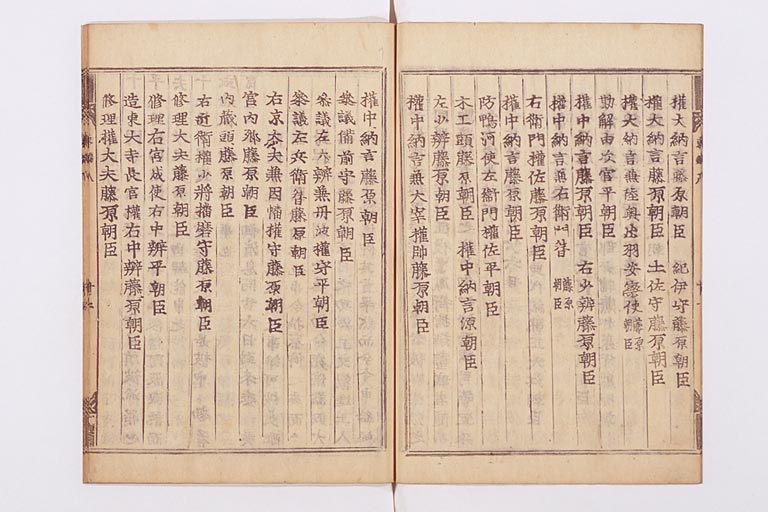 權大納言藤原朝臣　紀伊守藤原朝臣
權大納言藤原朝臣　土佐守藤原朝臣
權大納言兼陸奧出羽按察使藤原朝臣
勘解由次官平朝臣
權中納言藤原朝臣　右少辨藤原朝臣
權中納言兼右衛門督藤原朝臣
右衛門權佐藤原朝臣
權中納言藤原朝臣
防鴨河使左衛門權佐平朝臣
木工頭藤原朝臣　權中納言源朝臣
左少辨藤原朝臣
權中納言兼大宰權帥藤原朝臣
權中納言藤原朝臣
參議備前守藤原朝臣
參議左大辨兼丹波權守平朝臣
參議左兵衛督藤原朝臣
右京大夫兼因幡權守藤原朝臣
宮內卿藤原朝臣
內藏頭藤原朝臣
右近衛權少將播磨守藤原朝臣
修理大夫藤原朝臣
修理右宮城使右中辨平朝臣
造東大寺長官權右中辨藤原朝臣
修理權大夫藤原朝臣